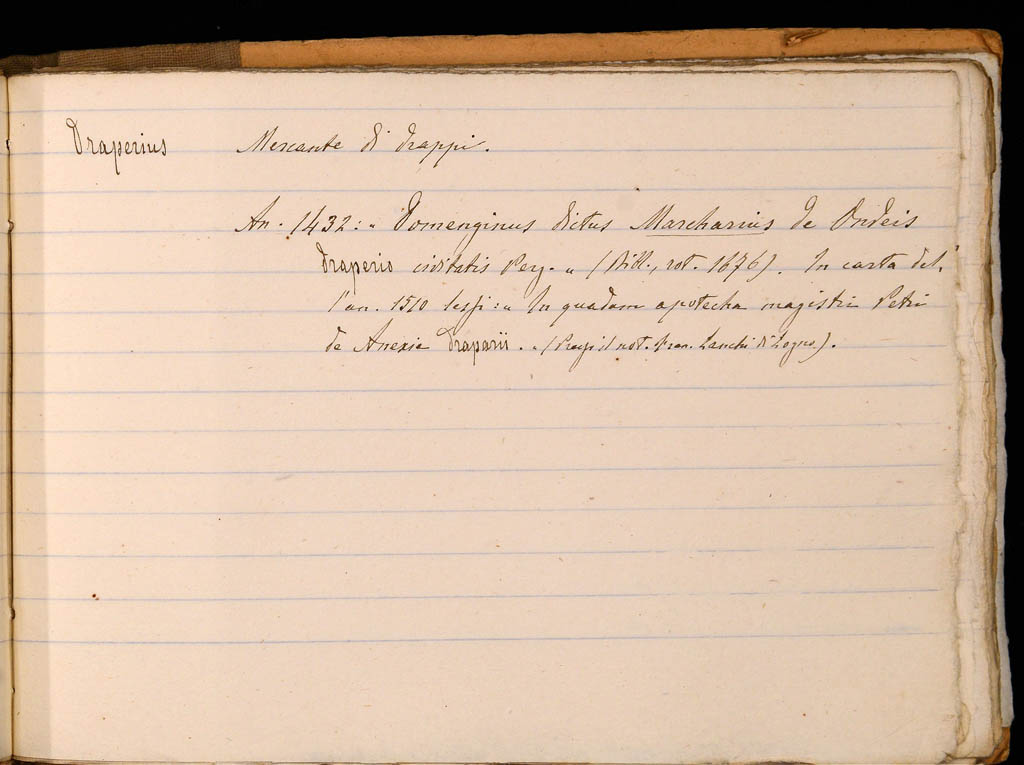 Draperius Mercante di drappi.
An. 1432: „ Domenginus dictus Marcharius de Ondeis
draperio civitatis Perg. „ (Bibl., rot. 1676). In carta del,
l'an. 1510 leggi: „ In quadam apotecha magistri Petri
de Anexia draparii. „ (Presso il not. Fran. Zanchi di Zogno).